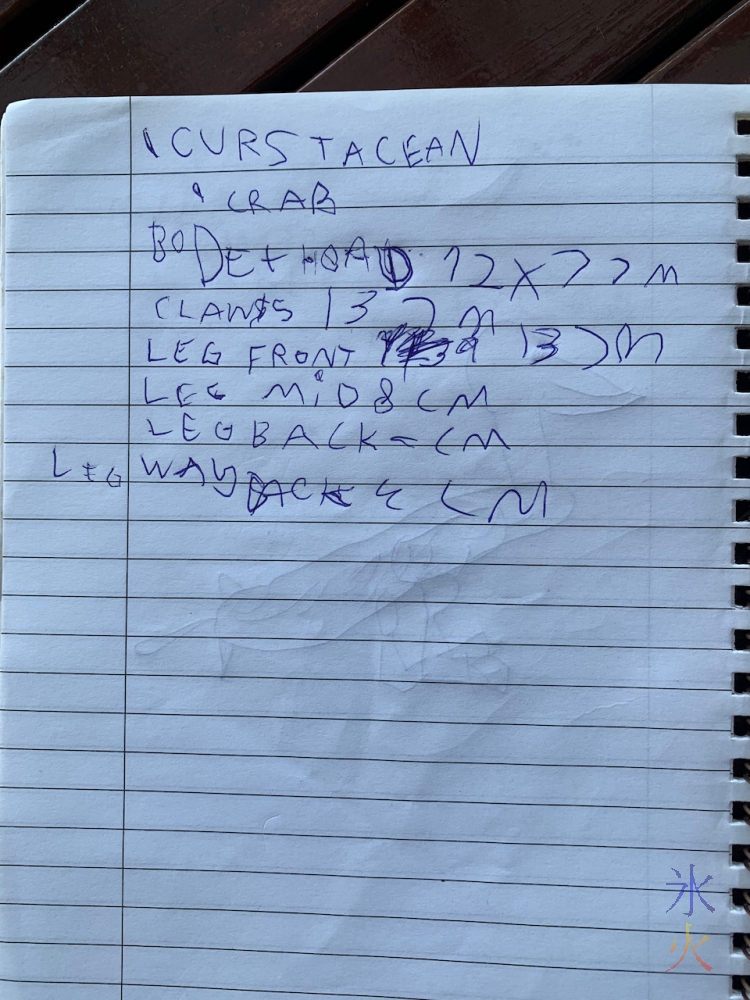 CURSTACEAN
CRAB
BODE + HEAD 12 X 7 CM
CLAWS 13 CM
LEG FRONT 13 CM
LEG MiD 8 CM
LEG BACK CM
LEG WAY BACK CM
氷
火